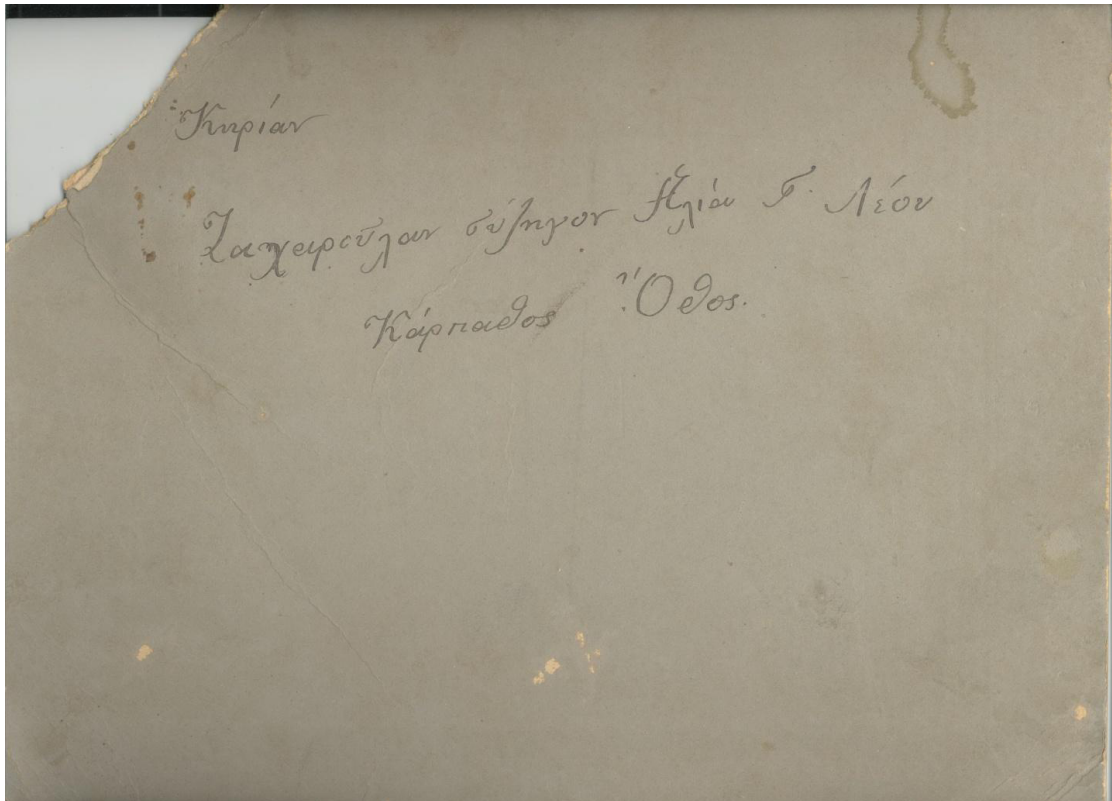 Κυρίαν
Ζαχαιροῦλαν σύζηγον Ηλία Γ. Λέου
Κάρπαθος Ὄθος.